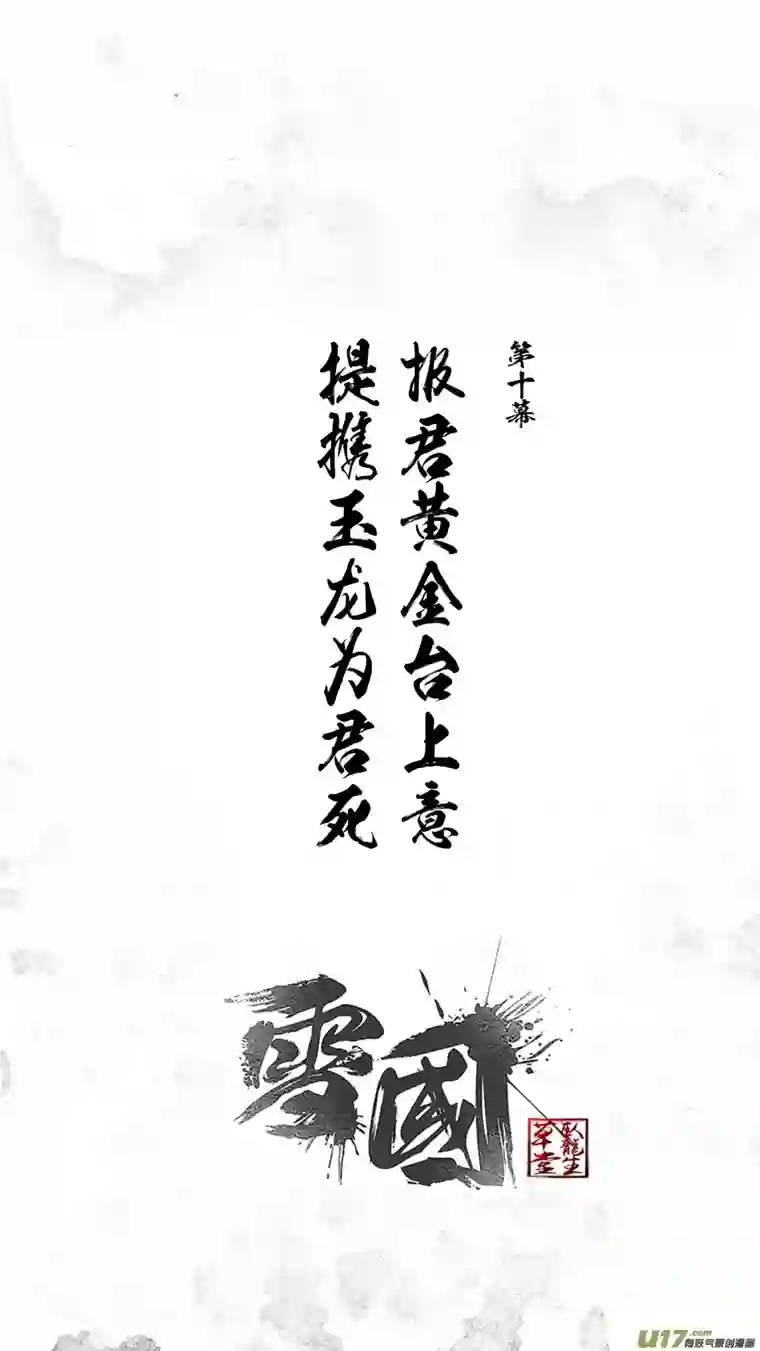 第十幕
报君黄金台上意
提携玉龙为君死
雪國
臥龍生
草堂
U17.com
有妖气原创漫画